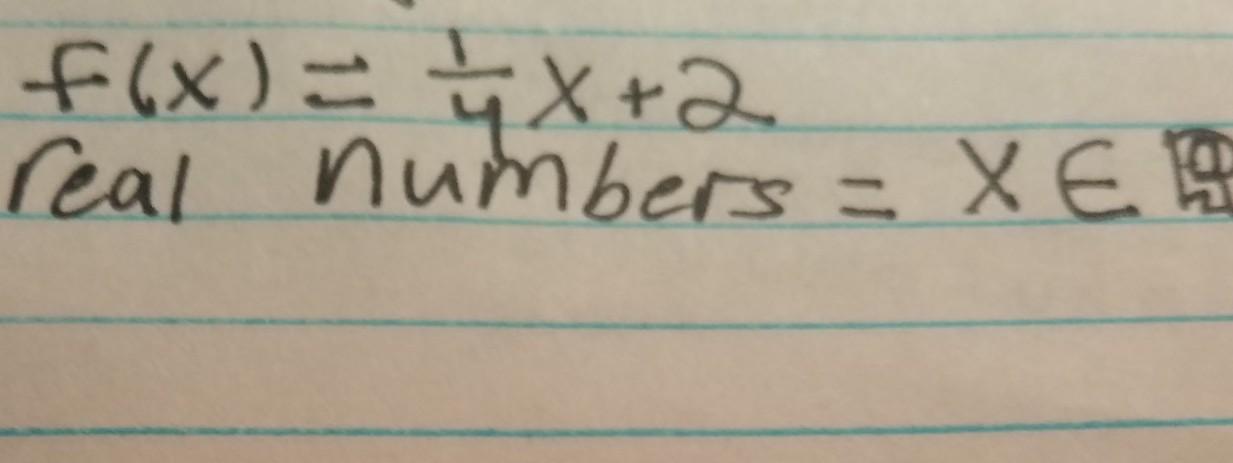 f(x) = 1/4 x + 2
real numbers = x ∈ ℝ